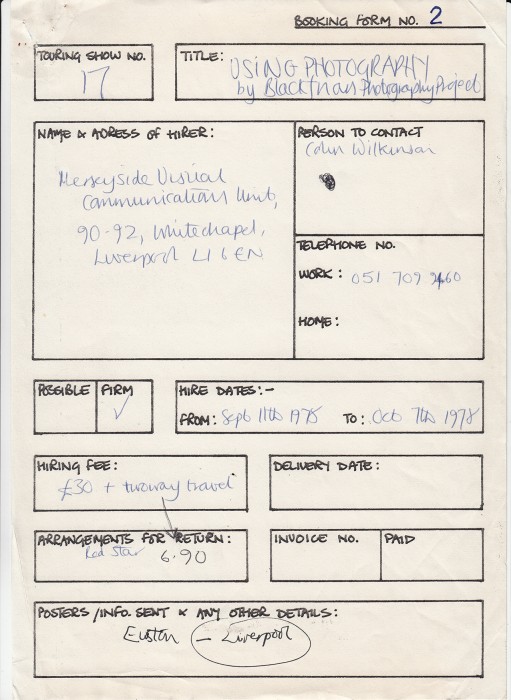 BOOKING FORM NO. 2
TOURING SHOW NO.
17
TITLE: USING PHOTOGRAPHY
by Blackfriars Photography Project
NAME & ADRESS OF HIRER:
Merseyside Visual
Communications Unit,
90-92, Whitechapel,
Liverpool L1 6EN
PERSON TO CONTACT
Colin Wilkinson
TELEPHONE NO.
WORK: 051 709 9460
HOME:
POSSIBLE
FIRM
✓
HIRE DATES:-
FROM: Sept 11th 1978 TO: Oct 7th 1978
HIRING FEE:
£30 + twoway travel
DELIVERY DATE:
ARRANGEMENTS FOR RETURN:
Red Star 6.90
INVOICE NO.
PAID
POSTERS/INFO. SENT & ANY OTHER DETAILS:
Euston - Liverpool